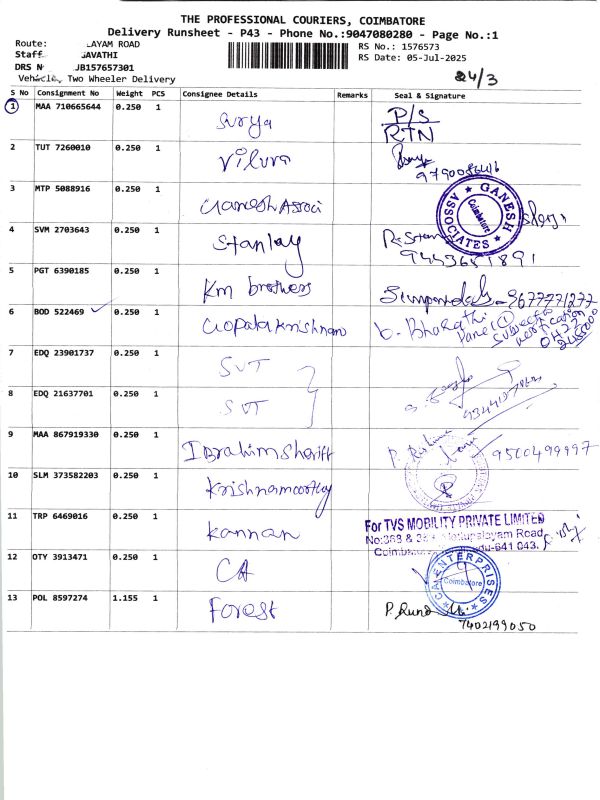 THE PROFESSIONAL COURIERS, COIMBATORE
Delivery Runsheet - P43 - Phone No.:9047080280 - Page No.:1
Route: LAYAM ROAD RS No.: 1576573
Staff GAVATHI RS Date: 05-Jul-2025
DRS N JB157657301
Vehicle, Two Wheeler Delivery 24/3
S No Consignment No Weight PCS Consignee Details Remarks Seal & Signature
1 MAA 710665644 0.250 1 Surya P/S
RTN
2 TUT 7260010 0.250 1 Viluva
3 MTP 5088916 0.250 1 Ganesh Associ GANESH ASSOCIATES Coimbatore
4 SVM 2703643 0.250 1 Stanley
9453681891
5 PGT 6390185 0.250 1 Km brothers 9677771277
6 BOD 522469 0.250 1 Gopalakrishnan b. Bharathi
Panel 1
0422
7 EDQ 23901737 0.250 1 SVT
8 EDQ 21637701 0.250 1 SVT
9 MAA 867919330 0.250 1 Ibrahim Sheriff 9500499997
10 SLM 373582203 0.250 1 Krishnamoorthy
11 TRP 6469016 0.250 1 Kannan For TVS MOBILITY PRIVATE LIMITED
Road
641 043.
12 OTY 3913471 0.250 1 CA CA ENTERPRISES Coimbatore
13 POL 8597274 1.155 1 Forest
7402199050